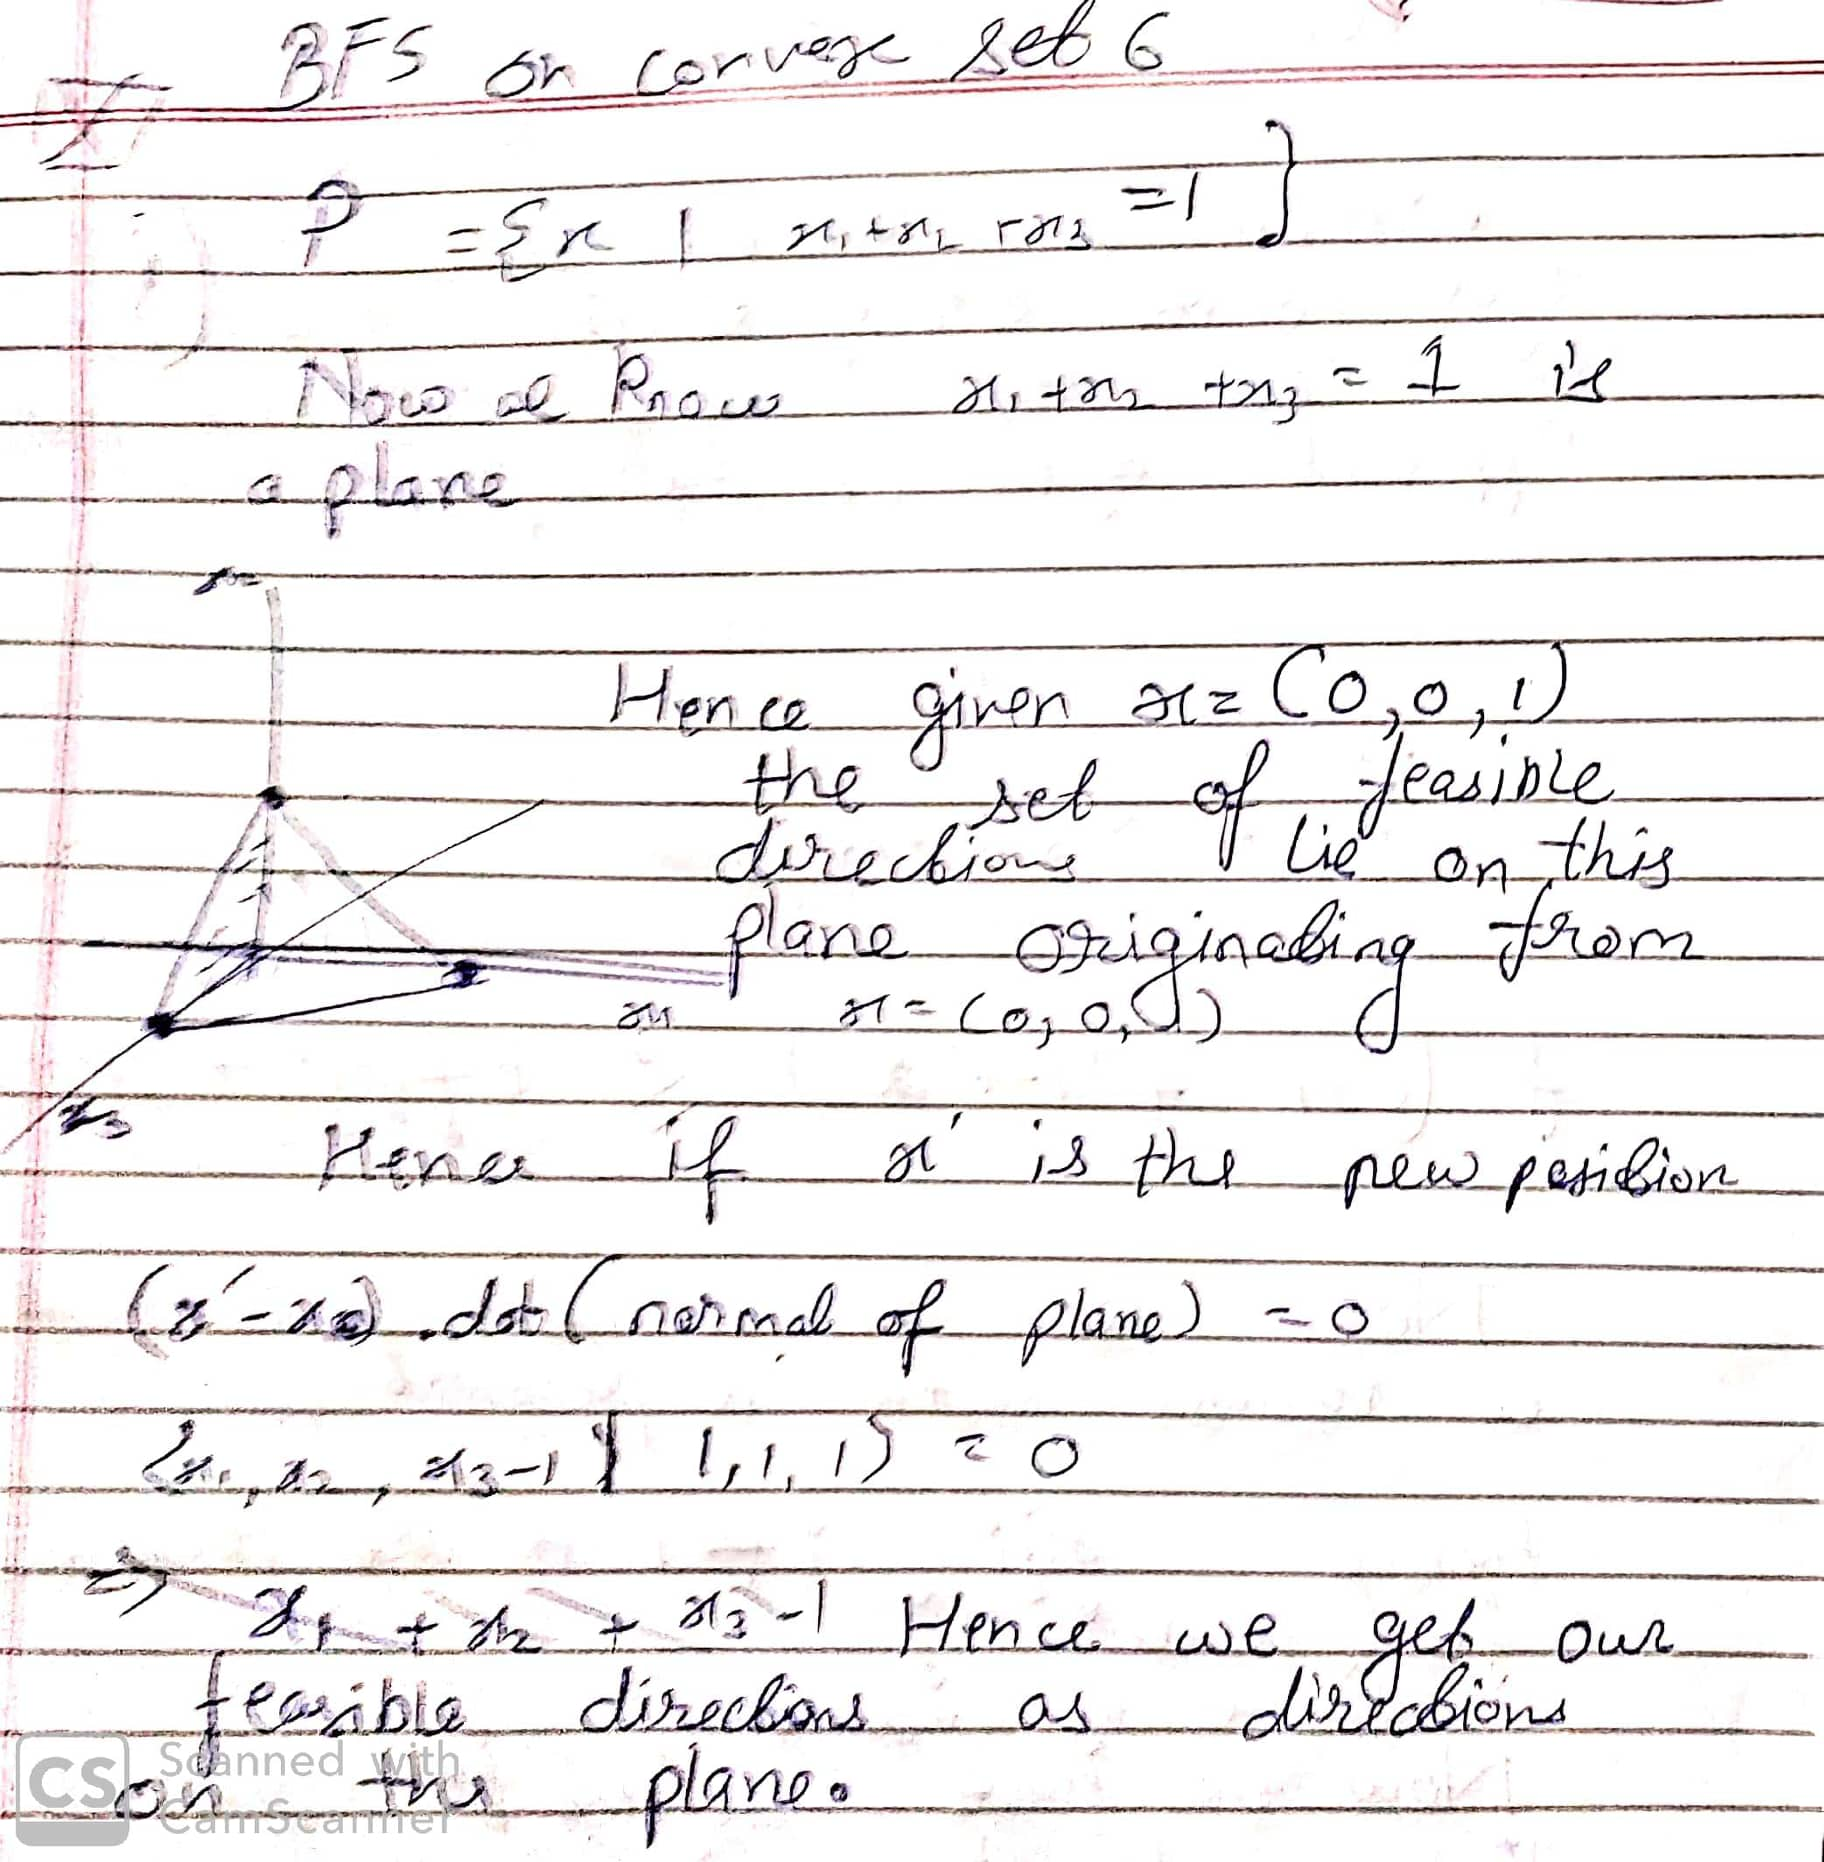 BFS on convex set 6
I
P = {x | x₁+x₂+x₃ = 1 }
Now we know x₁+x₂+x₃ = 1 is
a plane
x₂
Hence given x = (0,0,1)
the set of feasible
directions lie on this
plane originating from
x₁ x = (0,0,1)
x₃
Hence if x' is the new position
(x'-x₀).dot(normal of plane) = 0
{x₁, x₂, x₃-1} 1,1,1} = 0
⇒ x₁ + x₂ + x₃-1 Hence we get our
feasible directions as directions
on the plane.
CS Scanned with
CamScanner